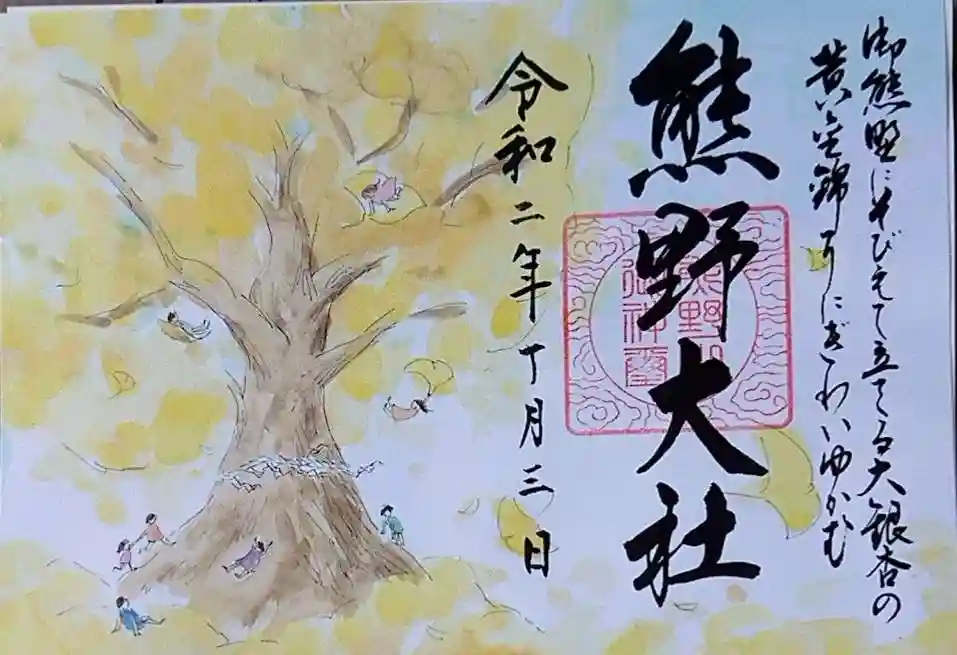 御熊野にそびえて立てる大銀杏の
黄金錦 にぎわいゆかむ
熊野大社
令和二年十月三日